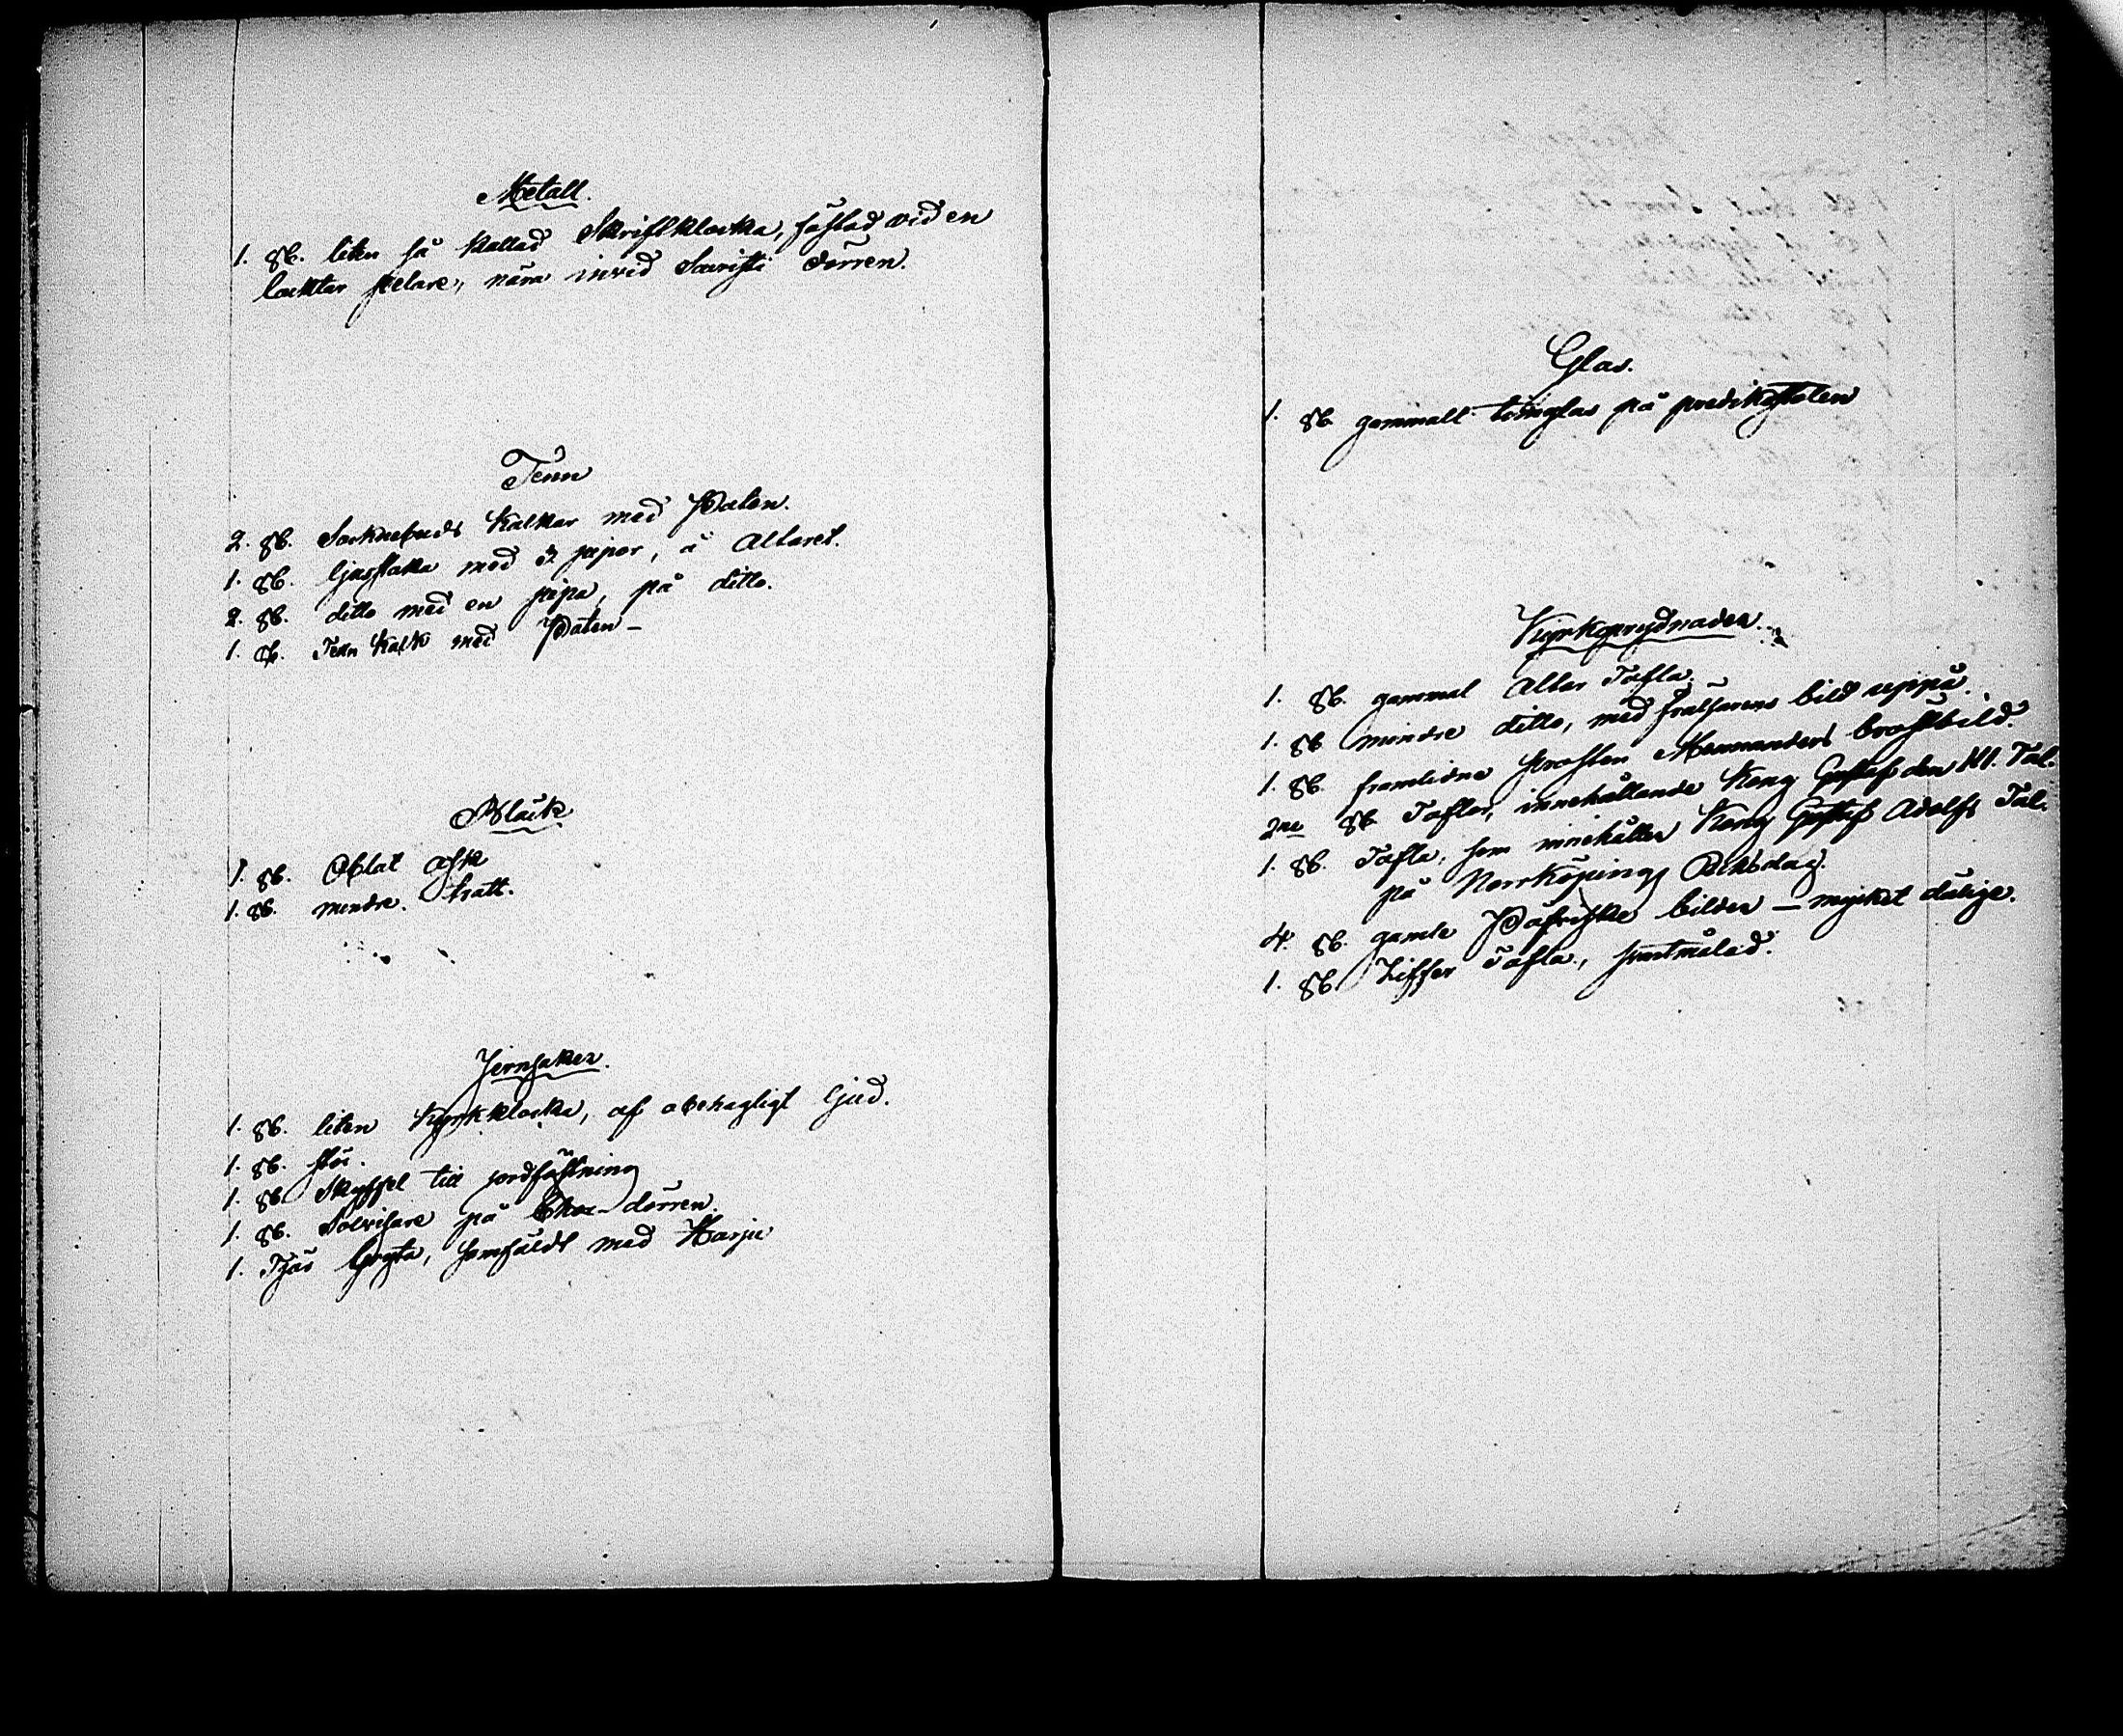 Metall.
1. st. liten så kallad Skriftklocka, fästad vid en
läktar pelare, nära invid Sacristi dörren.
Tenn
2. st. Socknebuds Kalkar med Paten.
1. st. ljusstake med 2 pipor, å Altaret.
2. st. ditto med en pipa, på ditto.
1. st. Tenn Kalk med Paten –
Bläck
1. st. Oblat ask
1. st. mindre tratt.
Jernsaker.
1. st. liten Kyrkklocka, af obehagligt ljud.
1. st. stör.
1. st. Skyffel till jordfästning
1. st. Solvisare på Chor-dörren.
1. Tjär Gryta, med Harju
Glas.
1. st. gammalt timglas på predikstolen
Kyrkoprydnader.
1. st. gammal Altar Tafla.
1. st mindre ditto, med frälsarens bild uppå.
1. st. framlidne prosten bröstbild.
2ne st. Taflor, innehållande Kong Gustaf den III. Tal.
1. st. Tafla, som innehåller Kong Gustaf Adolfs Tal.
på Norrköpings Riksdag.
4. st. gamle Påfviske bilder – mycket dålige.
1. st. Ziffer Tafla, svartmålad.